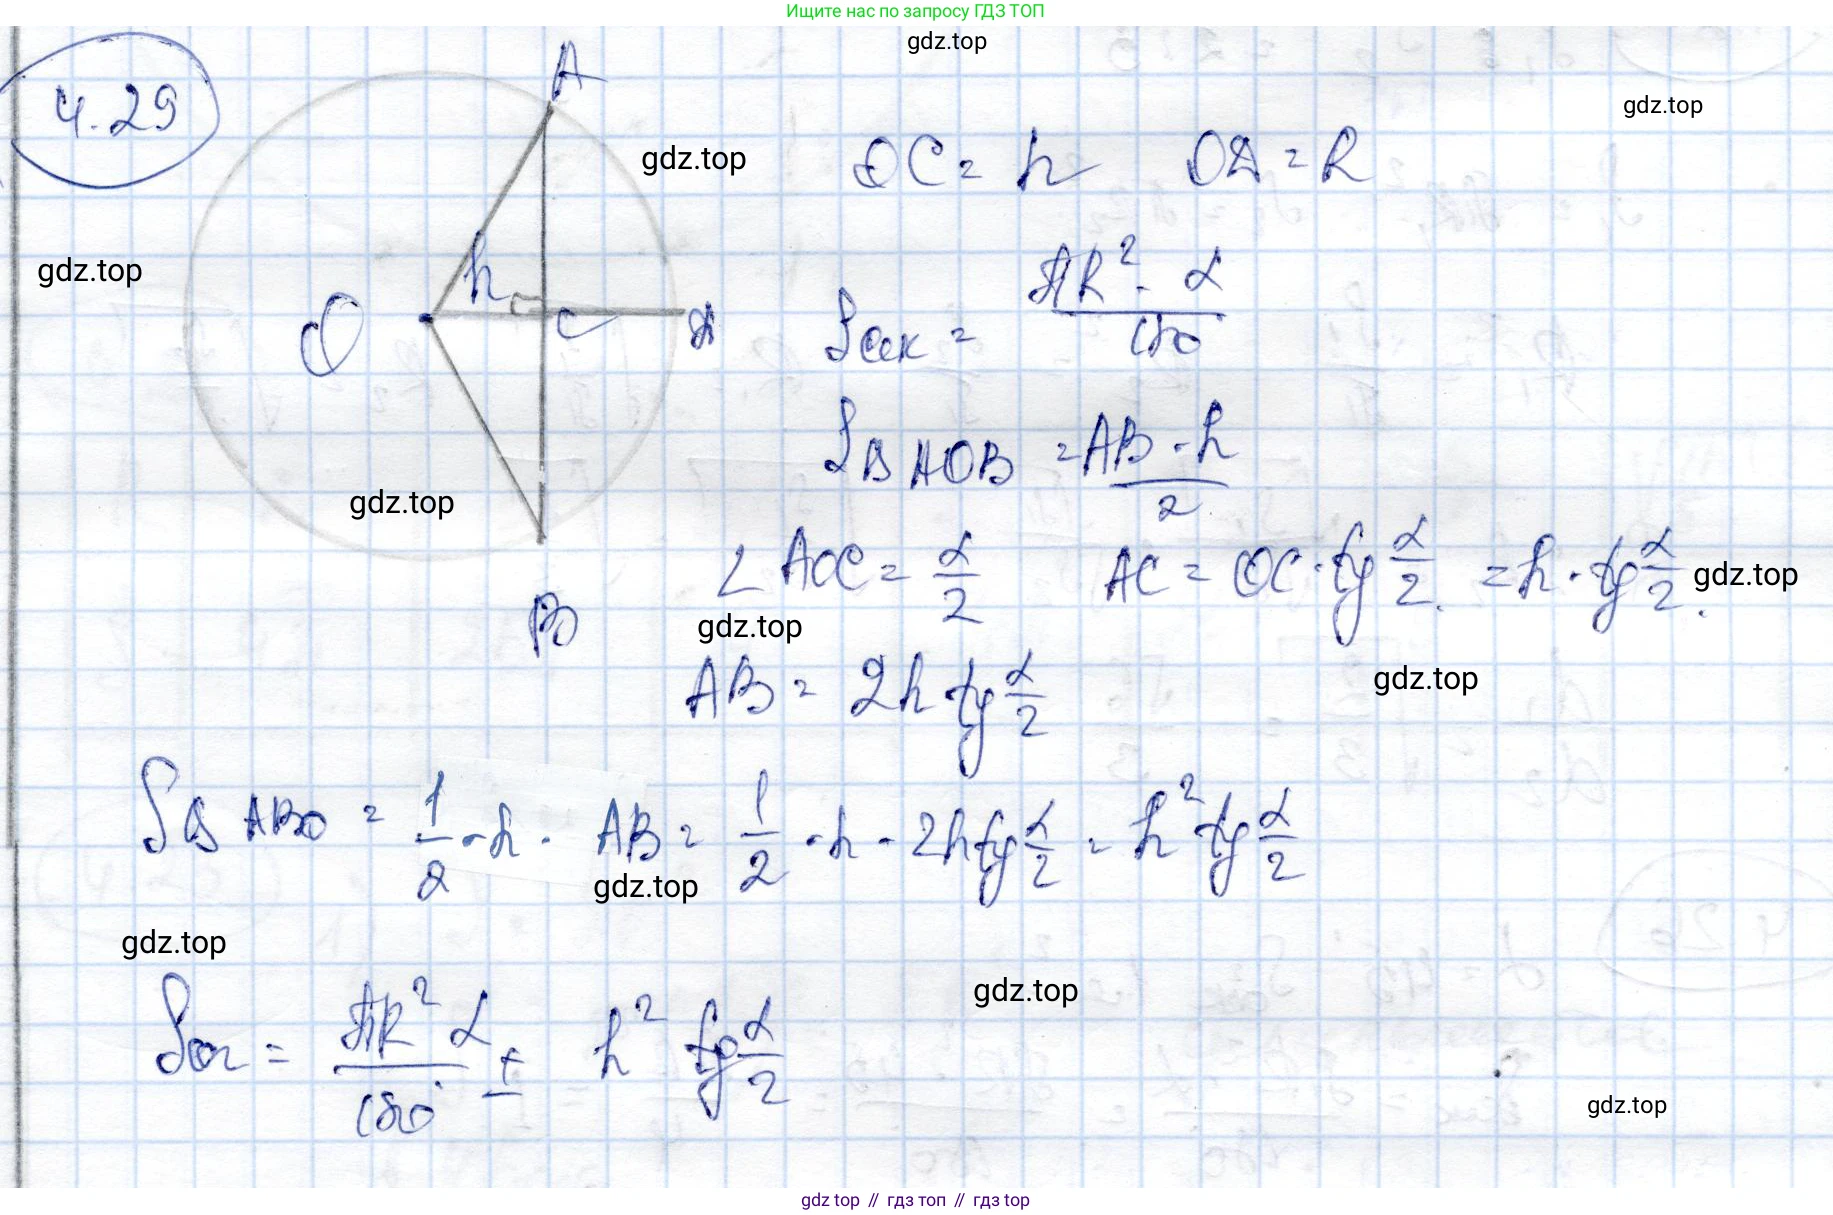 Ищите нас по запросу ГДЗ ТОП
gdz.top
4.29
A
gdz.top
gdz.top
OC = h OA = R
gdz.top
h
O
C
Sсек = πR² · α / 180°
S△AOB = AB · h / 2
gdz.top
∠AOC = α/2 AC = OC · tg α/2. = h · tg α/2.
gdz.top
B
gdz.top
gdz.top
AB = 2h tg α/2
S△ABO = 1/2 · h · AB = 1/2 · h · 2h tg α/2 = h² tg α/2
gdz.top
gdz.top
gdz.top
= πR² α / 180° ± h² tg α/2
gdz.top
gdz top // гдз топ // гдз top